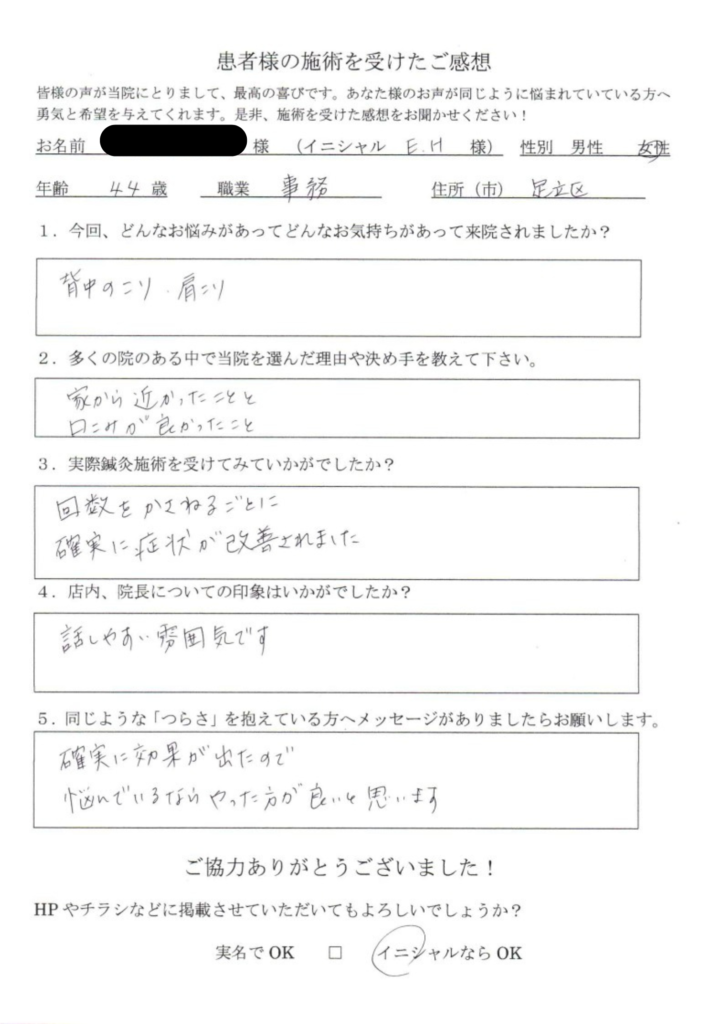 患者様の施術を受けたご感想
皆様の声が当院にとりまして、最高の喜びです。あなた様のお声が同じように悩まれていている方へ
勇気と希望を与えてくれます。是非、施術を受けた感想をお聞かせください！
お名前 様 （イニシャル E.H 様） 性別 男性 女性
年齢 44 歳 職業 事務 住所（市） 足立区
１．今回、どんなお悩みがあってどんなお気持ちがあって来院されましたか？
背中のこり．肩こり
２．多くの院のある中で当院を選んだ理由や決め手を教えて下さい。
家から近かったことと
口こみが良かったこと
３．実際鍼灸施術を受けてみていかがでしたか？
回数をかさねるごとに
確実に症状が改善されました
４．店内、院長についての印象はいかがでしたか？
話しやすい雰囲気です
５．同じような「つらさ」を抱えている方へメッセージがありましたらお願いします。
確実に効果が出たので
悩んでいるならやった方が良いと思います
ご協力ありがとうございました！
HPやチラシなどに掲載させていただいてもよろしいでしょうか？
実名でOK □ イニシャルならOK